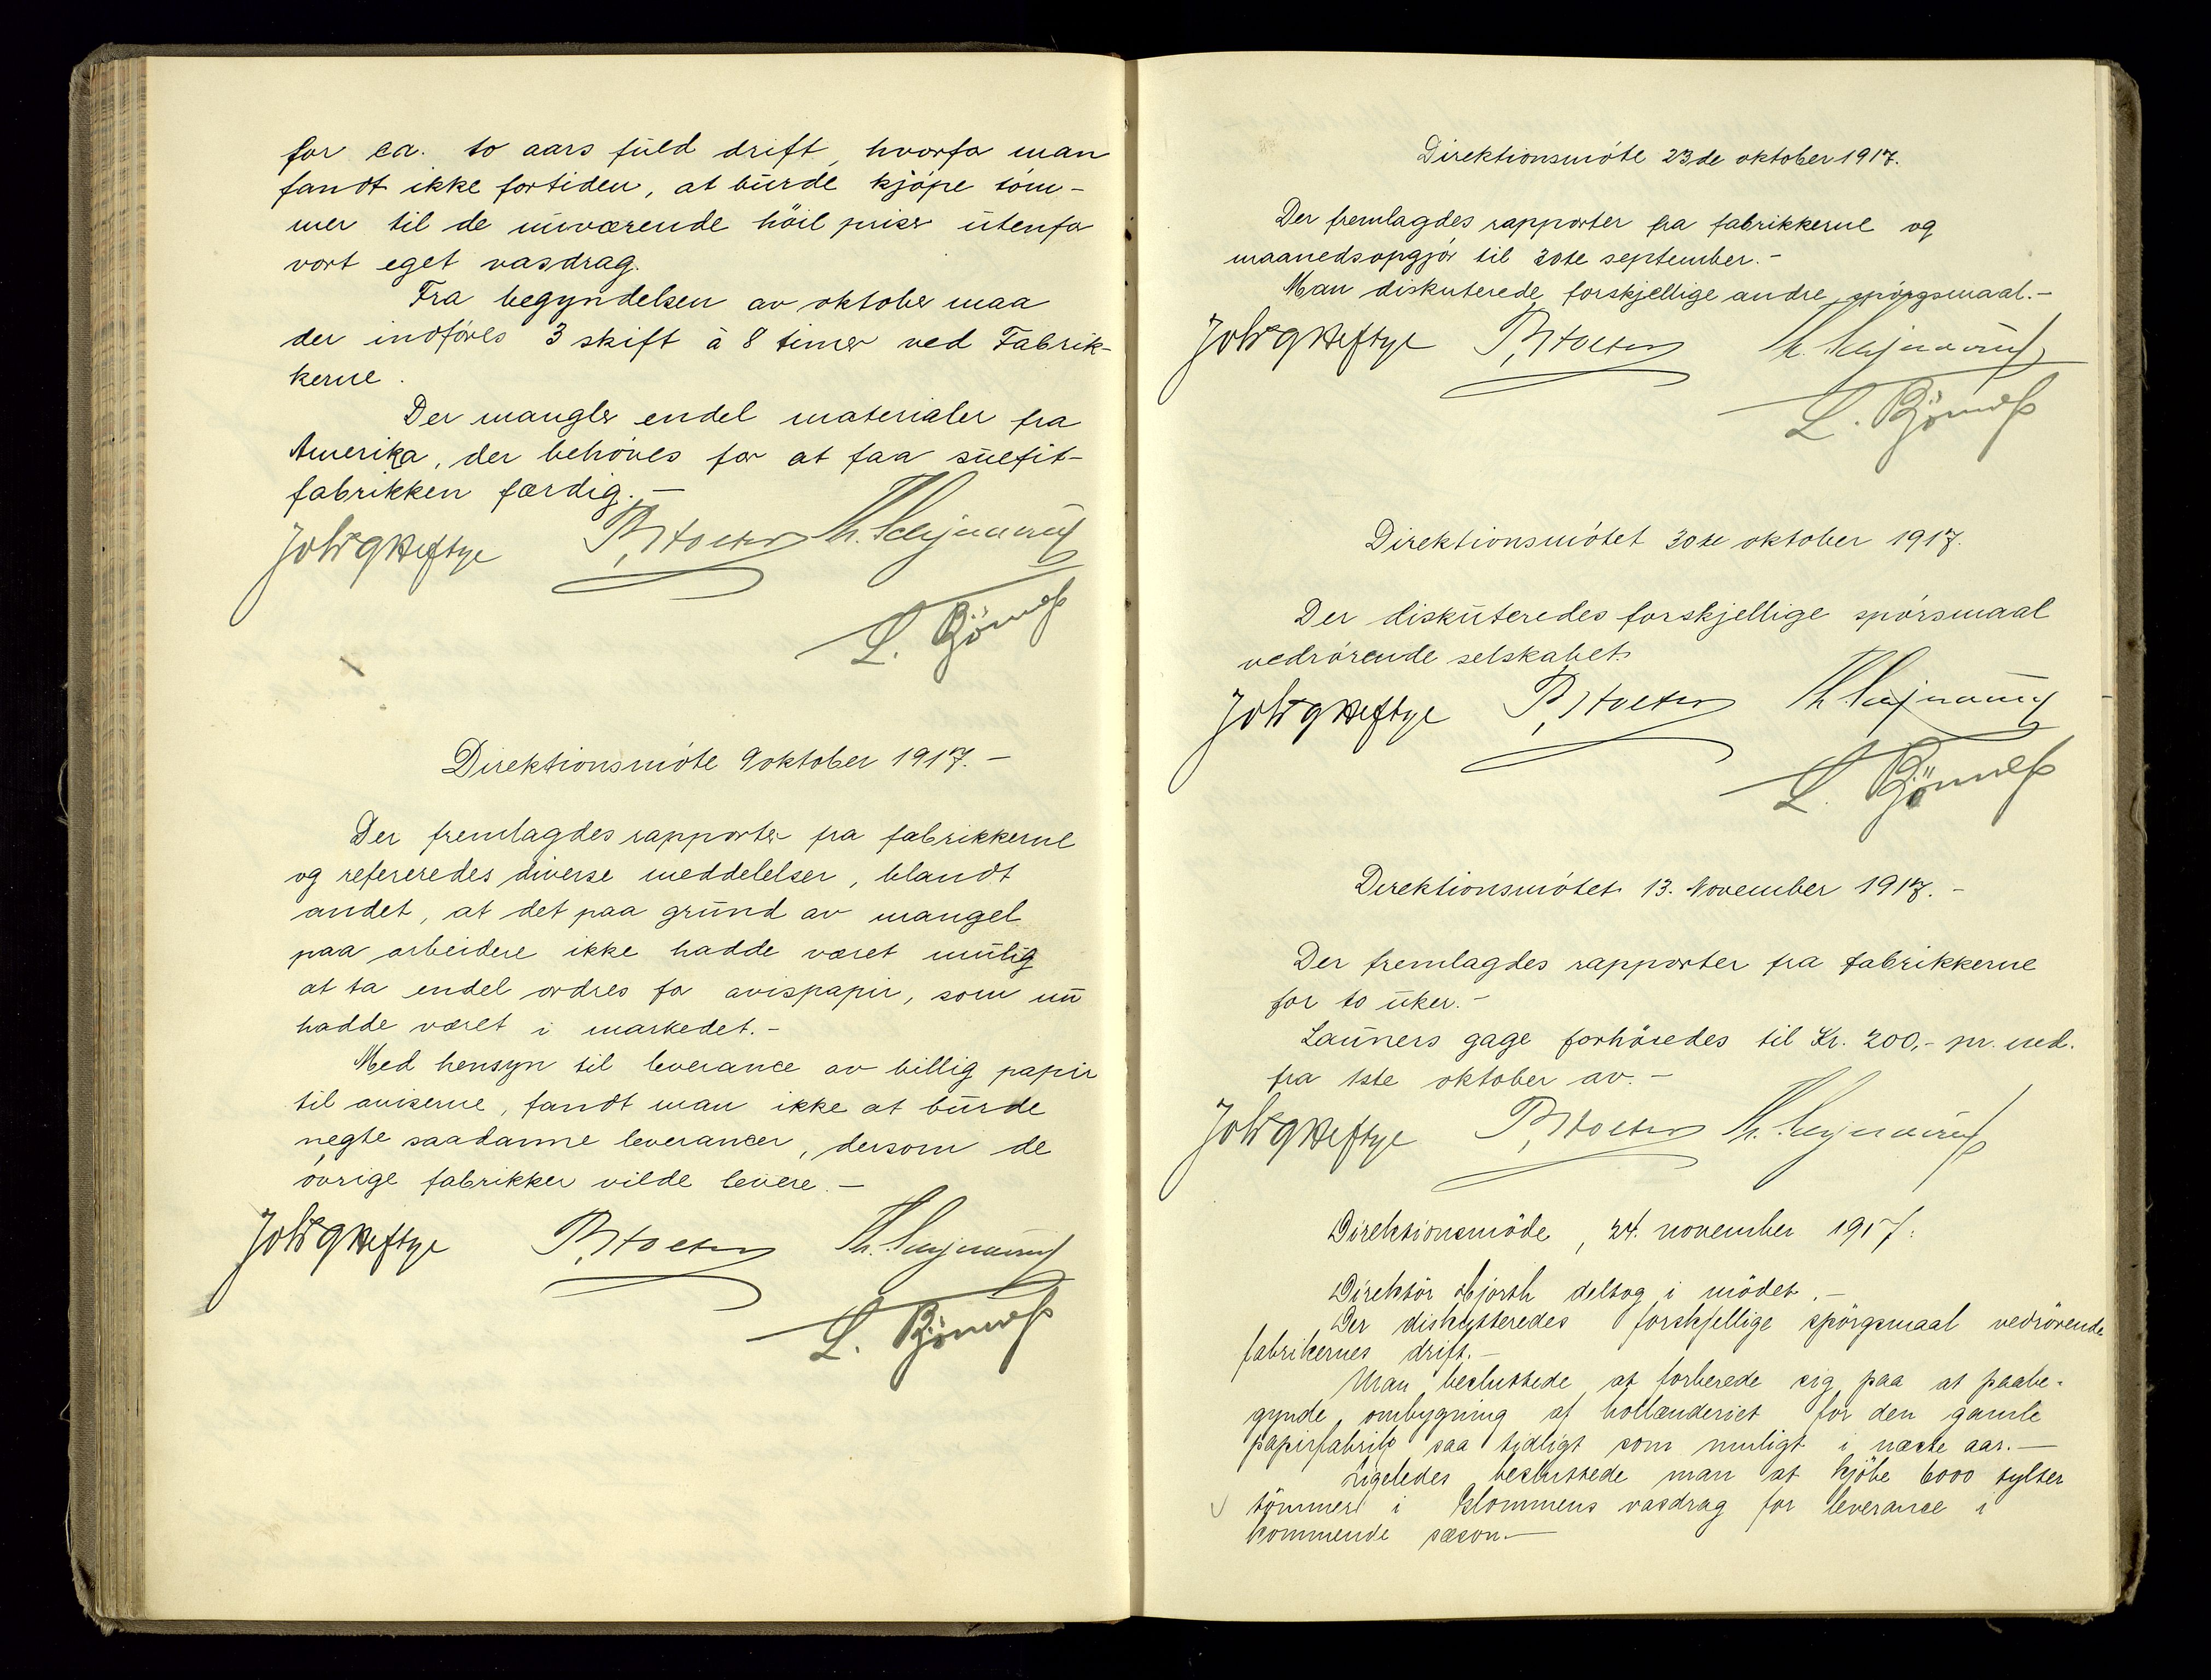 for ca. to aars fuld drift, hvorfor man
fandt ikke fortiden, at burde kjöpe töm-
mer til de nuværende höie priser utenfor
vort eget vasdrag.
Fra begyndelsen av oktober maa
der indföres 3 skift à 8 timer ved Fabrik-
kerne.
Der mangler endel materialer fra
Amerika, der behöves for at faa sulfit-
fabrikken færdig. —
Joh. G Heftye
L. Björnels
Direktionsmöte 9 oktober 1917. —
Der fremlagdes rapporter fra fabrikkerne
og refereredes diverse meddelelser, blandt
andet, at det paa grund av mangel
paa arbeidere ikke hadde været mulig
at ta endel ordres for avispapir, som nu
hadde været i markedet. -
Med hensyn til leverance av billig papir
til aviserne, fandt man ikke at burde
negte saadanne leverancer, dersom de
övrige fabrikker vilde levere. —
Joh. G Heftye
L. Björnels
Direktionsmöte 23de oktober 1917.
Der fremlagdes rapporter fra fabrikkerne og
maanedsopgjör til 30te september. -
Man diskuterede forskjellige andre spörgsmaal. -
Joh. G Heftye
L. Björnels
Direktionsmötet 30te oktober 1917.
Der diskuteredes forskjellige spörsmaal
vedrörende selskabet.
Joh. G Heftye
L. Björnels
Direktionsmötet 13. November 1917. -
Der fremlagdes rapporter fra fabrikkerne
for to uker. -
Launers gage forhöiedes til Kr. 200,- pr. md.
fra 1ste oktober av. -
Joh. G Heftye
Direktionsmöde, 24. november 1917.
Direktör Hjorth deltog i mödet. -
Der diskutteredes forskjellige spörgsmaal vedrörende
fabrikernes drift. -
Man besluttede at forberede sig paa at paabe-
gynde ombygning af hollænderiet for den gamle
papirfabrik saa tidligt som muligt i næste aar. —
Ligeledes besluttede man at kjöbe 6000 tylter
tömmer i Glommens vasdrag for leverance i
kommende sæson. —